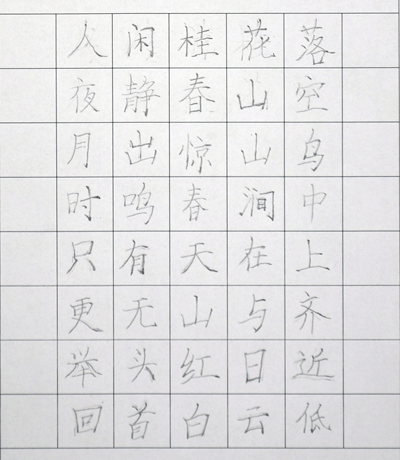 人闲桂花落
夜静春山空
月出惊山鸟
时鸣春涧中
只有天在上
更无山与齐
举头红日近
回首白云低